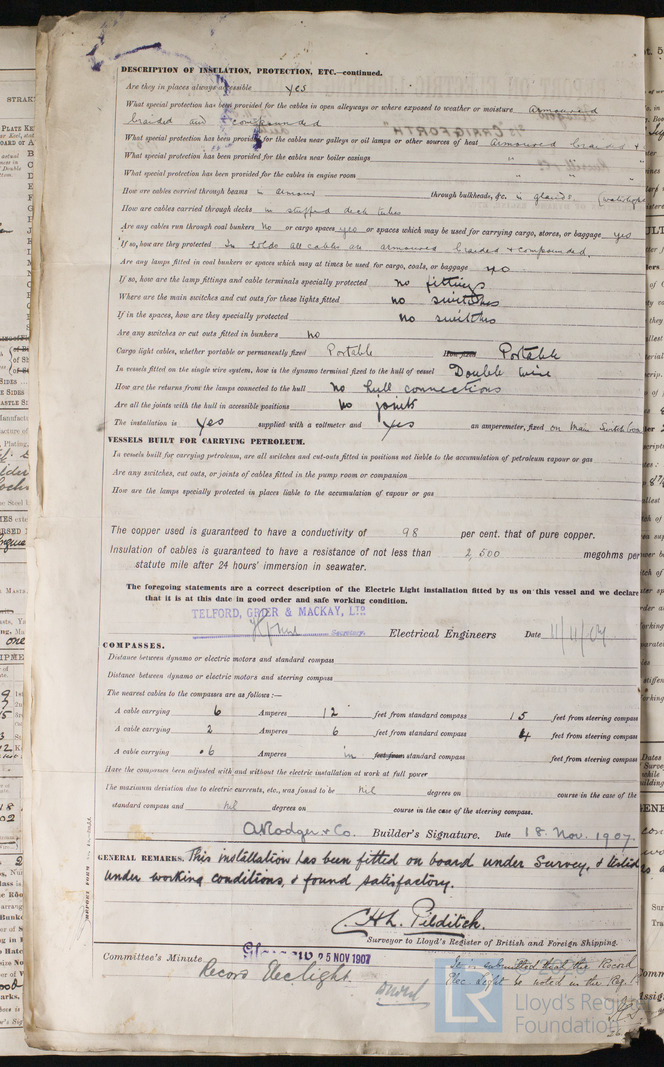 DESCRIPTION OF INSULATION, PROTECTION, ETC.—continued.
Are they in places always accessible yes
What special protection has been provided for the cables in open alleyways or where exposed to weather or moisture armoured
braided and compounded
What special protection has been provided for the cables near galleys or oil lamps or other sources of heat armoured braided +
What special protection has been provided for the cables near boiler casings " "
What special protection has been provided for the cables in engine room " "
How are cables carried through beams in armour through bulkheads, &c. in glands (watertight
How are cables carried through decks in stuffed deck tubes
Are any cables run through coal bunkers no or cargo spaces yes or spaces which may be used for carrying cargo, stores, or baggage yes
If so, how are they protected In holds all cables are armoured braided + compounded.
Are any lamps fitted in coal bunkers or spaces which may at times be used for cargo, coals, or baggage no
If so, how are the lamp fittings and cable terminals specially protected no fittings
Where are the main switches and cut outs for these lights fitted no switches
If in the spaces, how are they specially protected no switches
Are any switches or cut outs fitted in bunkers no
Cargo light cables, whether portable or permanently fixed Portable How fixed Portable
In vessels fitted on the single wire system, how is the dynamo terminal fixed to the hull of vessel Double wire
How are the returns from the lamps connected to the hull No hull connections
Are all the joints with the hull in accessible positions No joints
The installation is yes supplied with a voltmeter and yes an amperemeter, fixed on Main Switch
VESSELS BUILT FOR CARRYING PETROLEUM.
In vessels built for carrying petroleum, are all switches and cut-outs fitted in positions not liable to the accumulation of petroleum vapour or gas
Are any switches, cut outs, or joints of cables fitted in the pump room or companion
How are the lamps specially protected in places liable to the accumulation of vapour or gas
The copper used is guaranteed to have a conductivity of 98 per cent. that of pure copper.
Insulation of cables is guaranteed to have a resistance of not less than 2,500 megohms per
statute mile after 24 hours' immersion in seawater.
The foregoing statements are a correct description of the Electric Light installation fitted by us on this vessel and we declare
that it is at this date in good order and safe working condition.
TELFORD, GRIER & MACKAY, LTD
Secretary Electrical Engineers Date 11/11/07
COMPASSES.
Distance between dynamo or electric motors and standard compass
Distance between dynamo or electric motors and steering compass
The nearest cables to the compasses are as follows:—
A cable carrying 6 Amperes 12 feet from standard compass 15 feet from steering compass
A cable carrying 2 Amperes 6 feet from standard compass 4 feet from steering compass
A cable carrying .6 Amperes in feet from standard compass feet from steering compass
Have the compasses been adjusted with and without the electric installation at work at full power
The maximum deviation due to electric currents, etc., was found to be Nil degrees on course in the case of the
standard compass and Nil degrees on course in the case of the steering compass.
A Rodger & Co. Builder's Signature. Date 18. Nov. 1907.
GENERAL REMARKS. This installation has been fitted on board under Survey, & tested
under working conditions, & found satisfactory.
C.H.L. Pilditch.
Surveyor to Lloyd's Register of British and Foreign Shipping.
Committee's Minute Glasgow 25 NOV 1907
Record Elec light.
It is submitted that the Record
Elec. Light be noted in the Reg.
LR
Lloyd's Register
Foundation